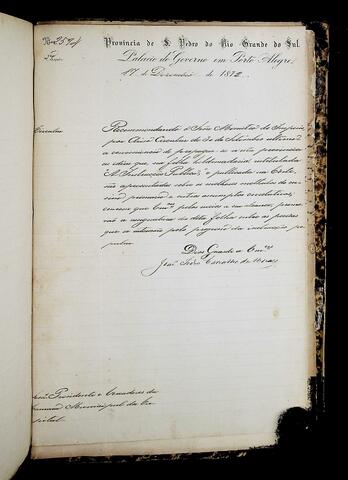 Nº 2594
Provincia de S. Pedro do Rio Grande do Sul.
Palacio do Governo em Porto Alegre,
17 de Dezembro de 1872
Circular
Recommendando o Snr. Ministro do Imperio
por Aviso Circular de 30 de Setembro ultimo
a conveniencia de propagar-se n'esta provincia
as ideias que, na folha hebdomadaria intitulada
"A Instrucção Publica", e publicada na Corte,
são apresentadas sobre os melhores methodos de en-
sino primario e outros assumptos correlativos,
convem que Vmces pelos meios a seu alcance, promo-
vão a assignatura da dita folha entre as pessoas
que se interessão pelo progresso da instrucção po-
pular.
Deos Guarde a Vmces
José Pedro Carvalho de Moraes
Presidente e Vereadores da
Camara Municipal da Ca-
pital.